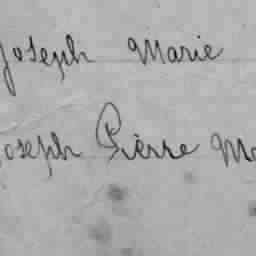 Joseph Marie
Joseph Pièrre